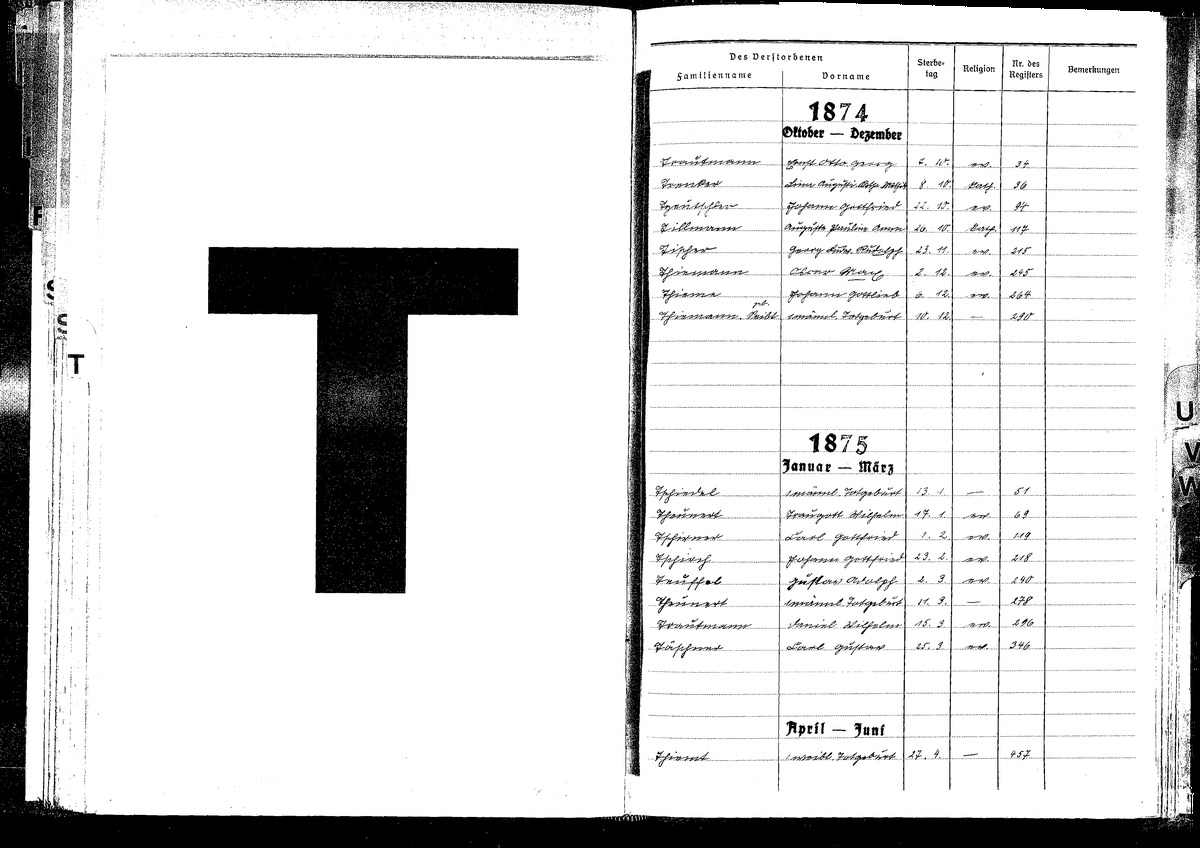 F
S
T
T
Des Verstorbenen
Familienname Vorname Sterbetag Religion Nr. des Registers Bemerkungen
1874
Oktober — Dezember
Trautmann Ernst Otto Georg 7. 10. ev. 34
Trenker 8. 10. kath. 36
Johann Gottfried 22. 10. ev. 94
Tillmann Auguste Pauline Anna 26. 10. kath. 117
Tischer Georg Rudolph 23. 11. ev. 215
Thiemann Oscar Max 2. 12. ev. 245
Thieme Johann Gottlieb 6. 12. ev. 264
Thiemann, geb. Seibt 1 männl. Totgeburt 10. 12. — 290
1875
Januar — März
Tschiedel 1 männl. Totgeburt 13. 1. — 51
Theunert Traugott Wilhelm 17. 1. ev. 69
Tschirner Carl Gottfried 1. 2. ev. 119
Tschirch Johann Gottfried 23. 2. ev. 218
Teuffel Gustav Adolph 2. 3. ev. 240
Theunert 1 männl. Totgeburt 11. 3. — 278
Trautmann Daniel Wilhelm 15. 3. ev. 296
Täschner Carl Gustav 25. 3. ev. 346
April — Juni
Thiemt 1 weibl. Totgeburt 27. 4. — 457
U
V
W